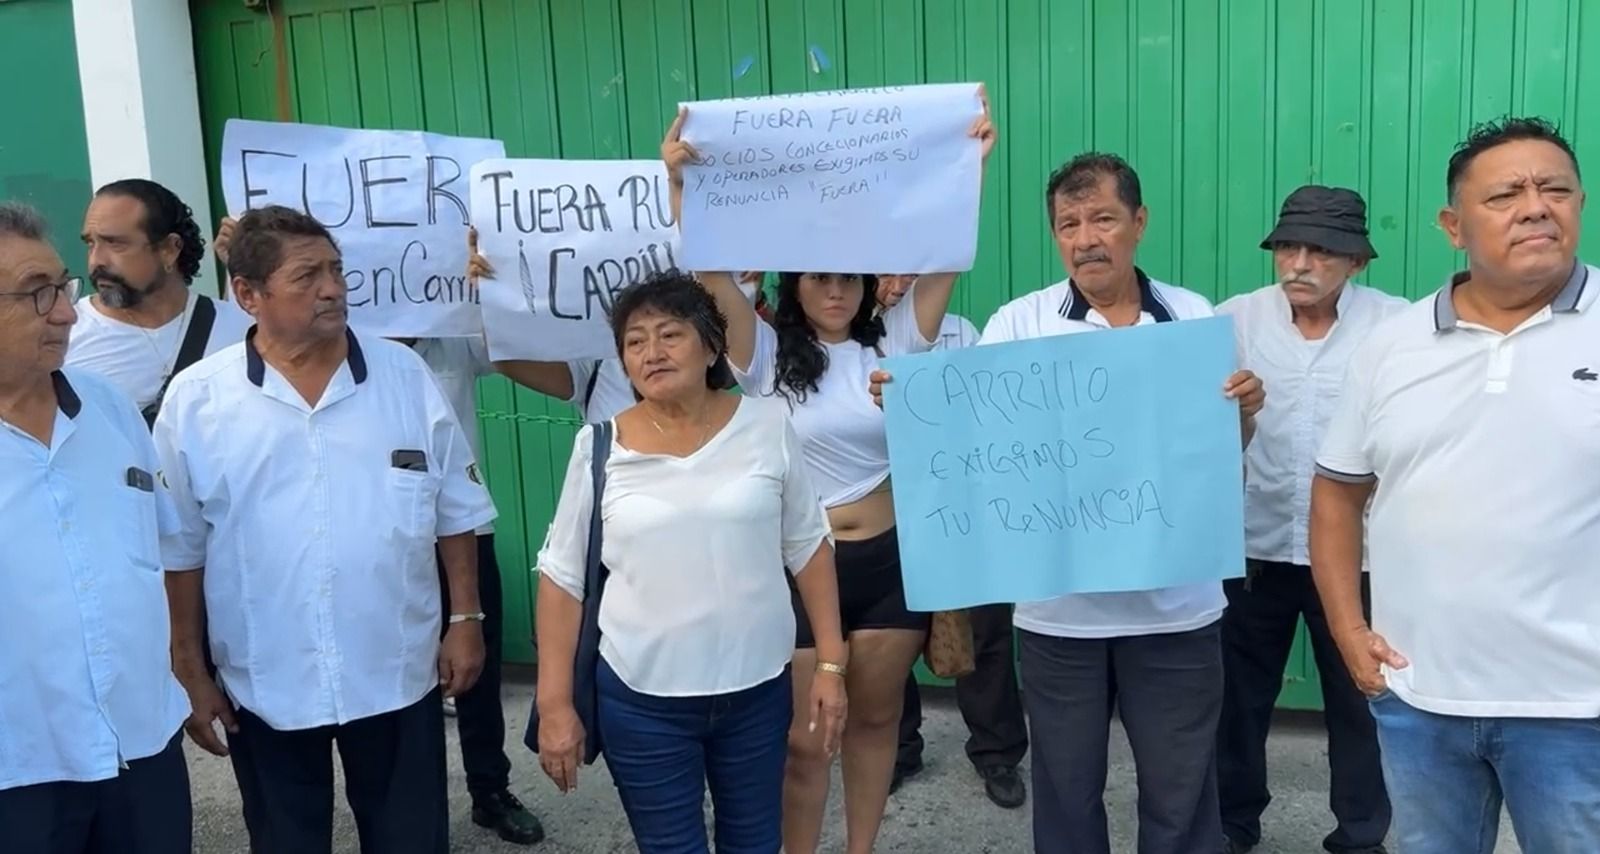 FUER
en Carri
FUERA RU
¡CARRILL
FUERA FUERA
SOCIOS CONCECIONARIOS
Y OPERADORES EXIGIMOS SU
RENUNCIA "FUERA"
CARRILLO
EXIGIMOS
TU RENUNCIA